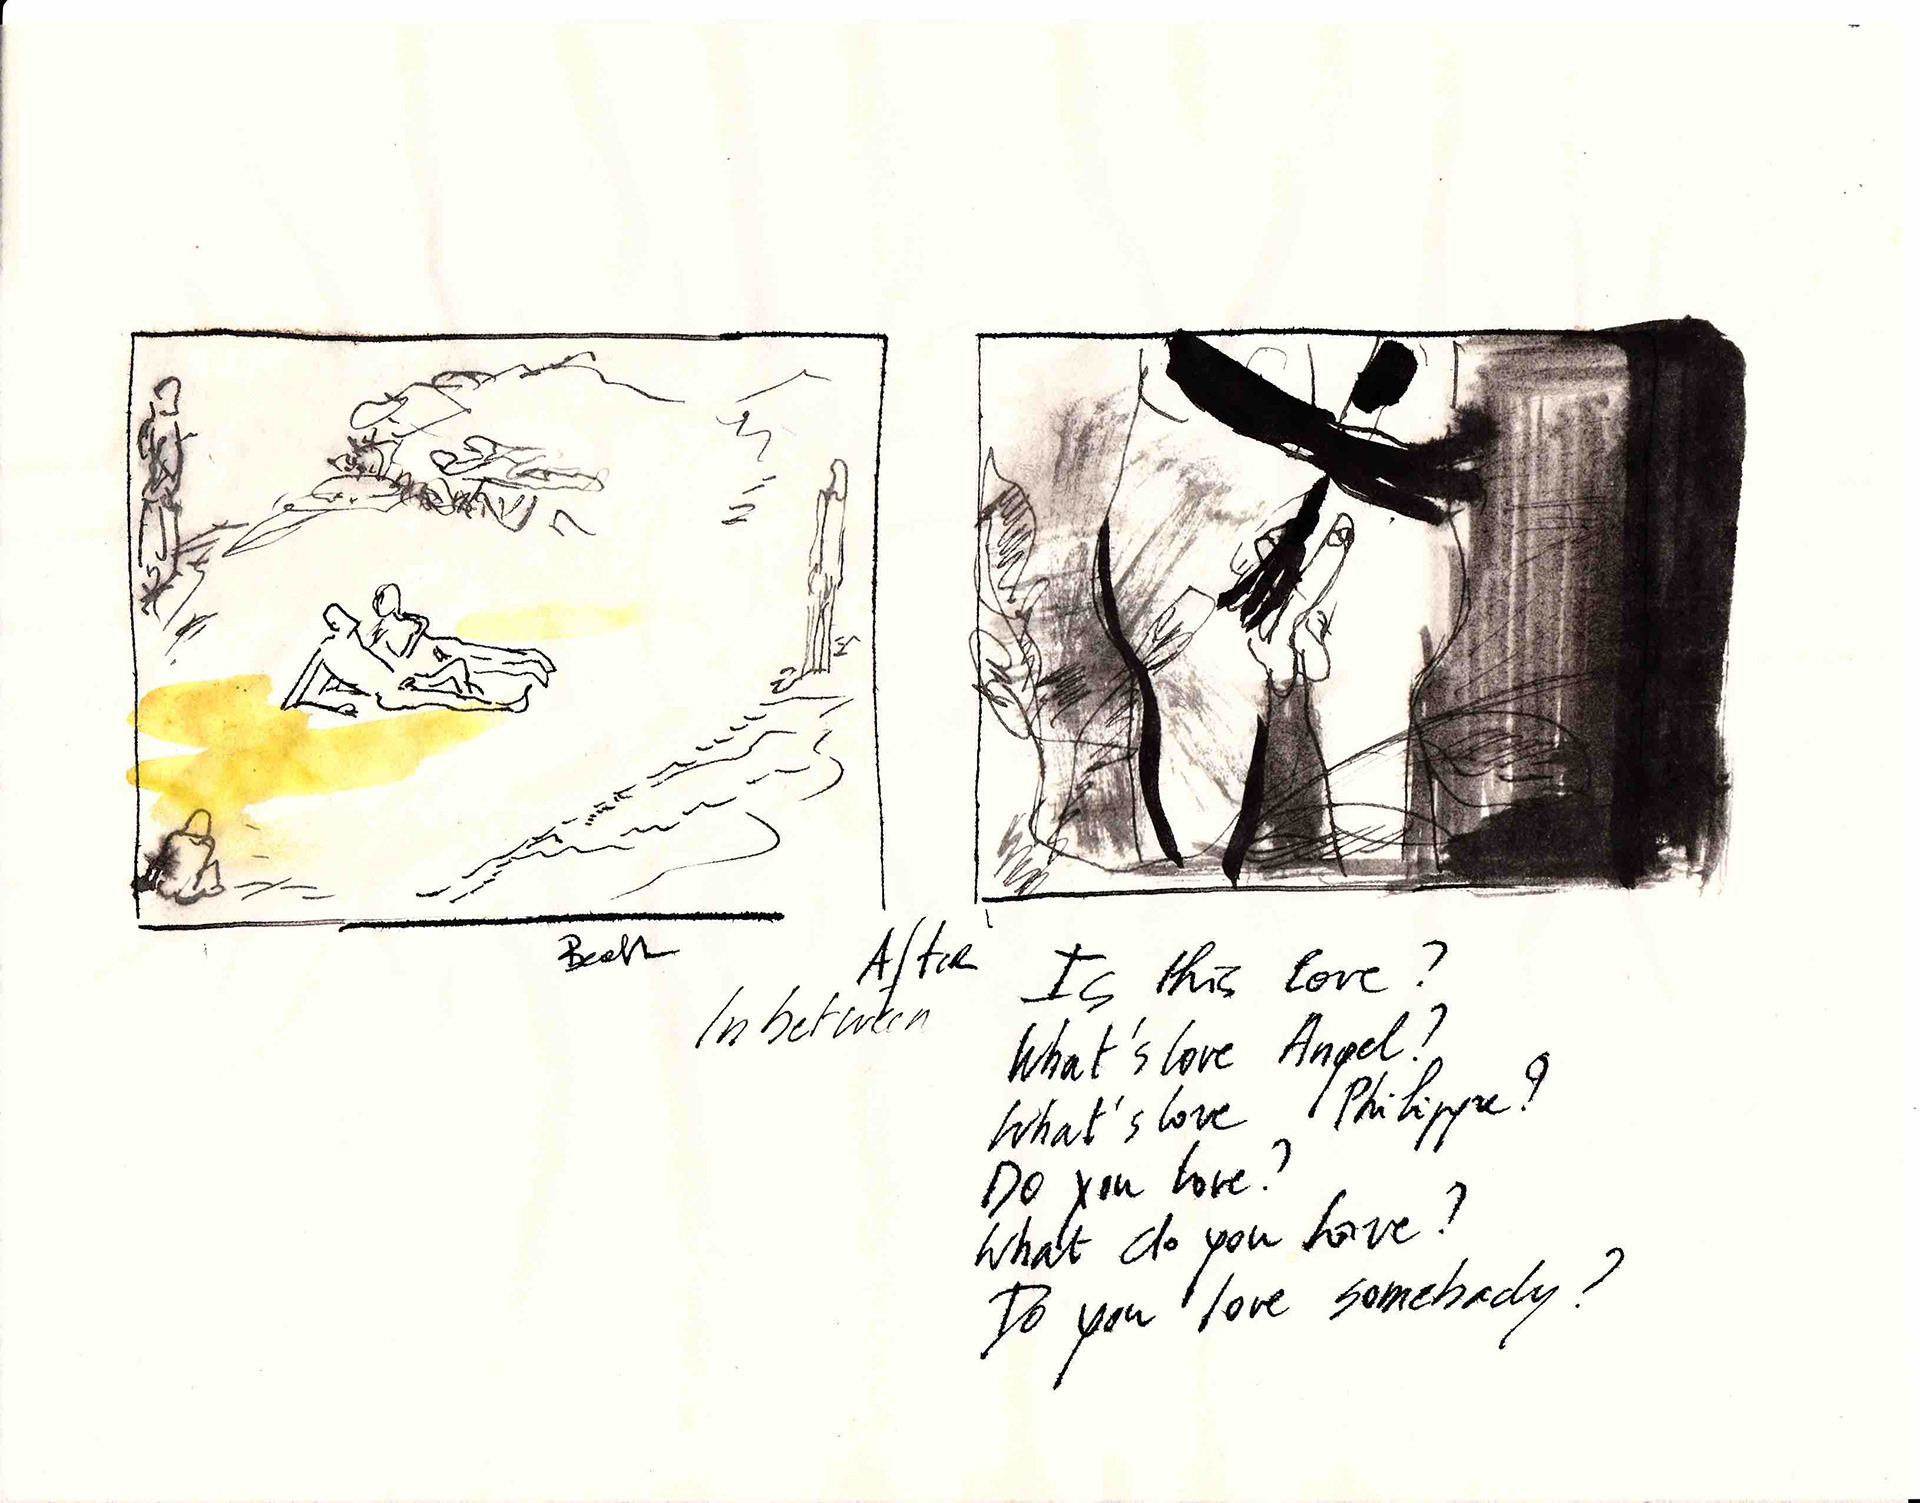 Beach
After
In between
Is this love?
What's love Angel?
What's love Philippe?
Do you love?
What do you love?
Do you love somebody?